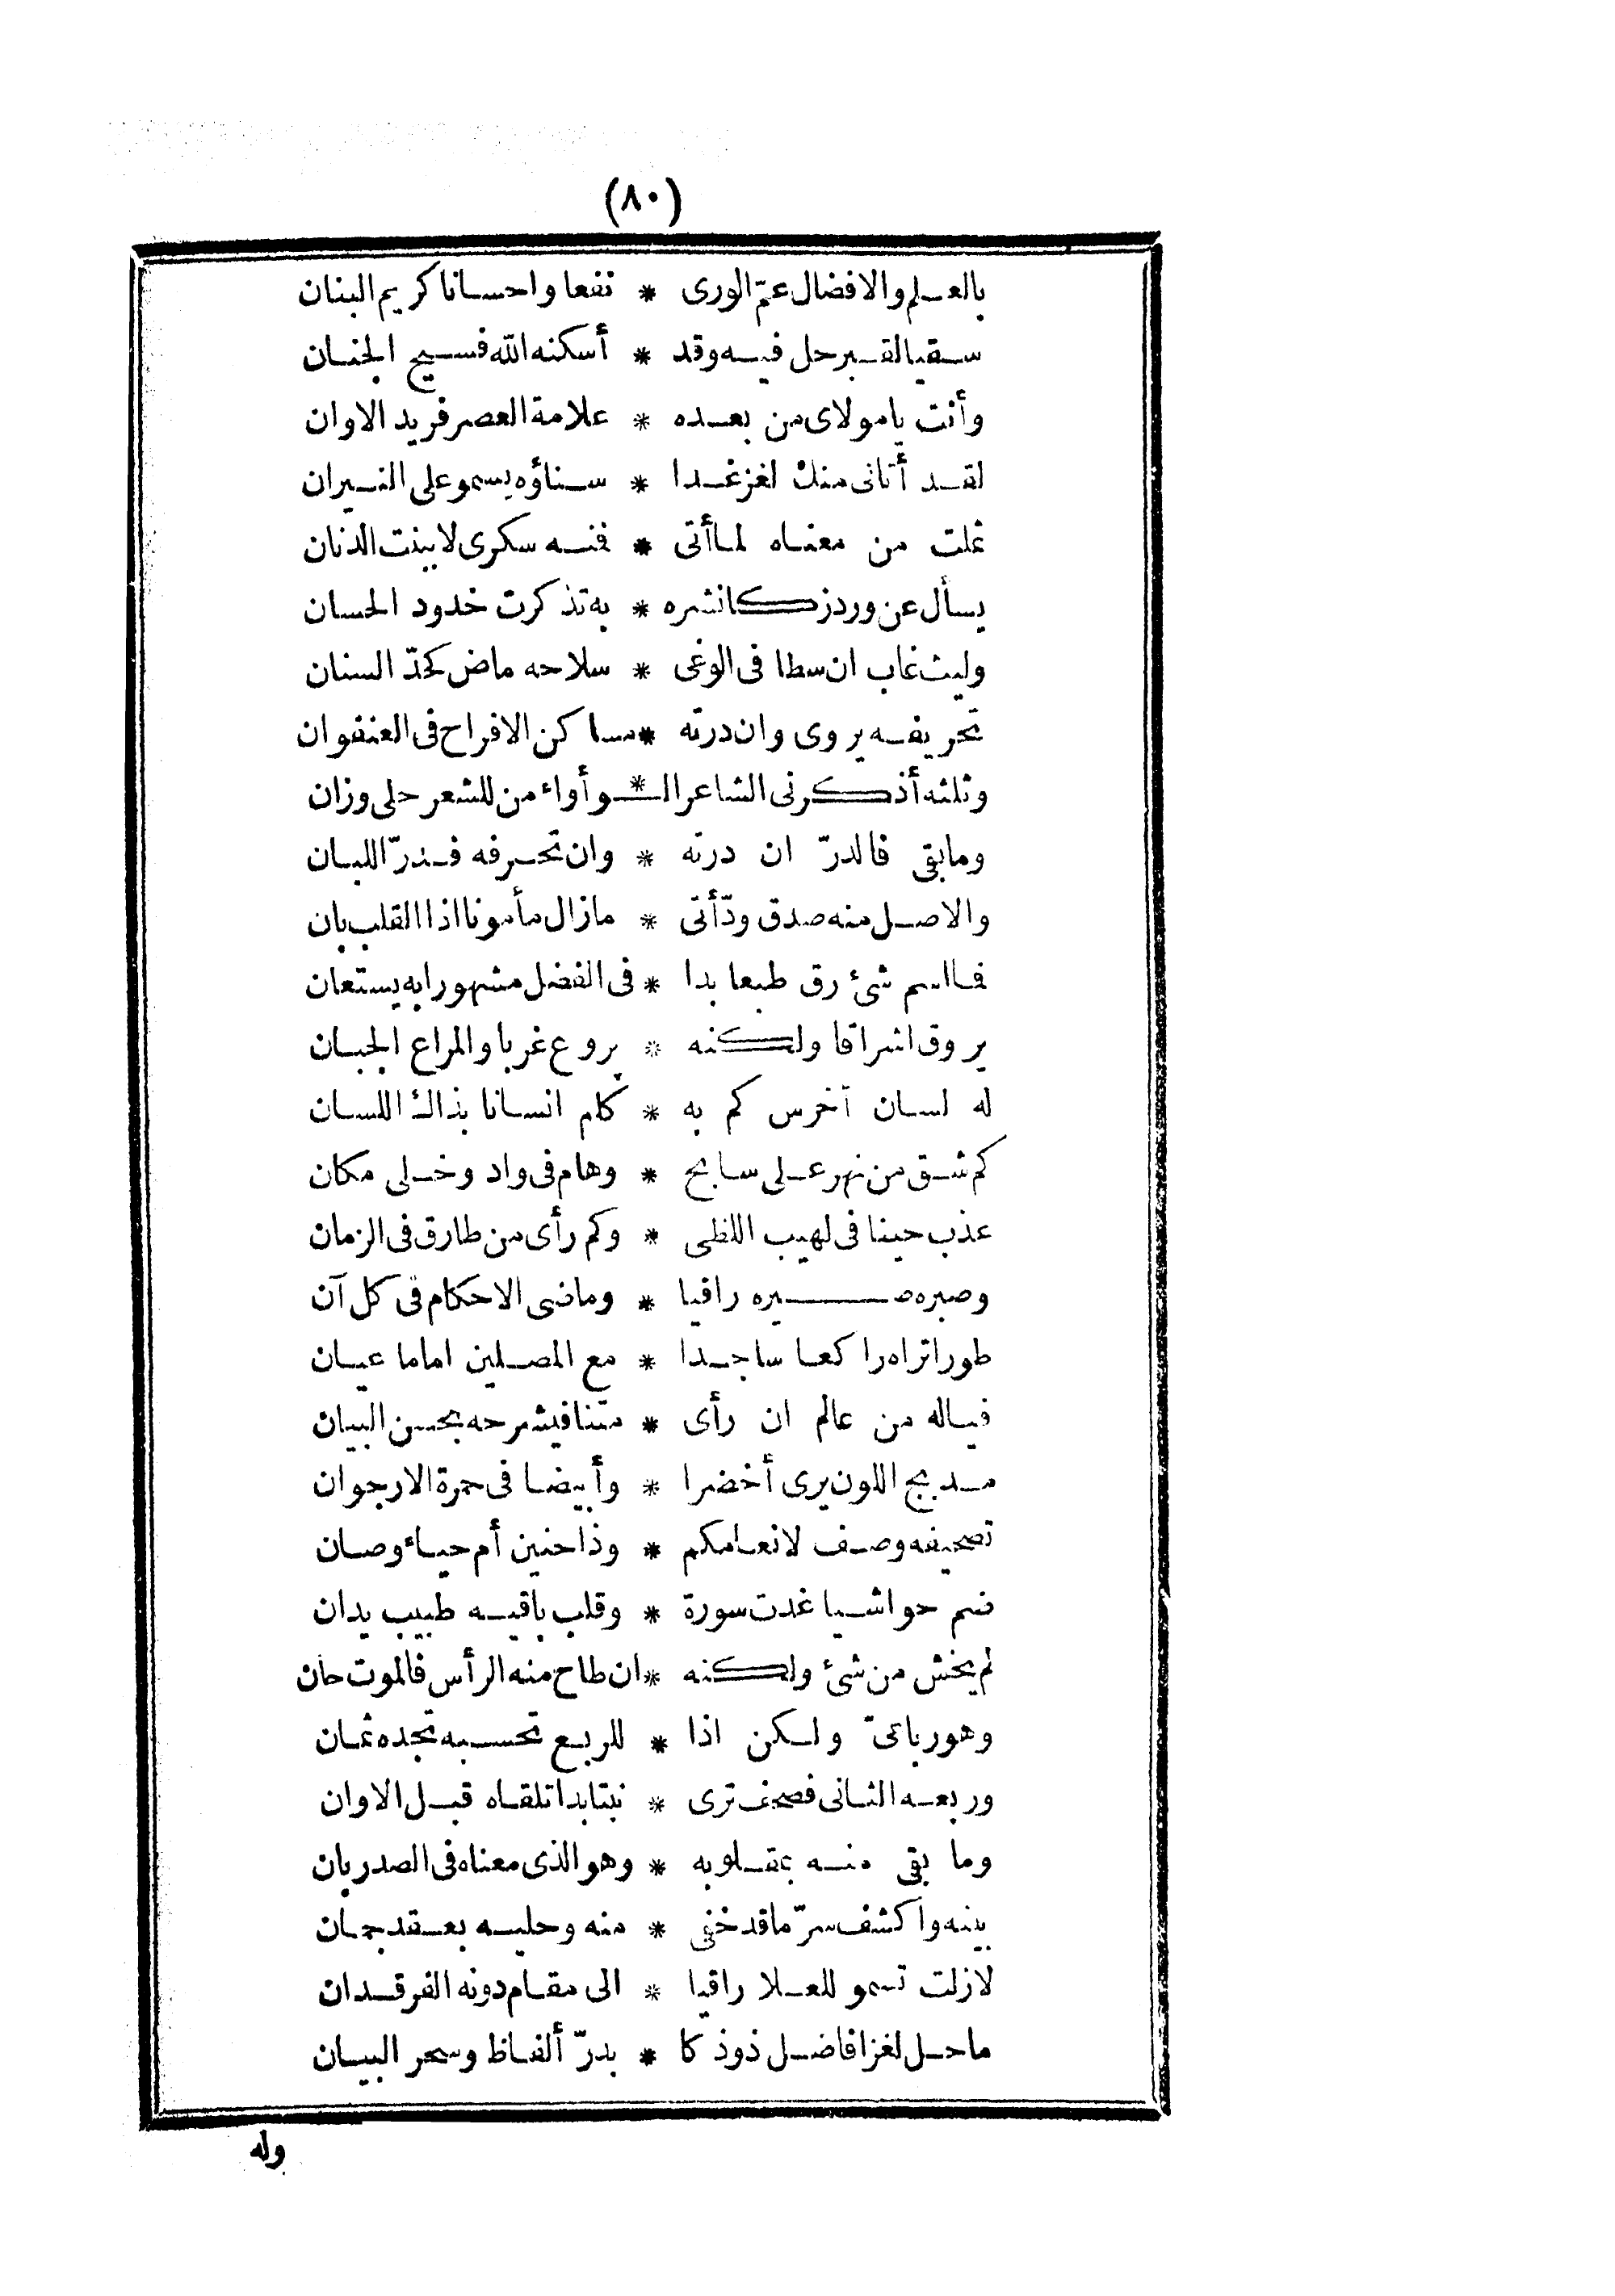 (٨٠)
بالعلم والافضال عمّ الورى * نفعا واحسانا كريم البنان
سقيا لقبر حل فيه وقد * أسكنه الله فسيح الجنان
وأنت يامولاى من بعده * علامة العصر فريد الاوان
لقد أتانى منك لغز غدا * سناؤه يسمو على النيران
ثملت من معناه لما أتى * فنه سكرى لا ببنت الدنان
يسأل عن ورد زكا نشره * به تذكرت خدود الحسان
وليث غاب ان سطا فى الوغى * سلاحه ماض كحدّ السنان
تحريفه يروى وان درته * مساكن الافراح فى العنفوان
وثلثه أذكرنى الشاعر الـ * ـوأواء من للشعر حلى وزان
ومابقى فالدرّ ان درته * وان تحرفه فدرّ اللبان
والاصل منه صدق ودّ أتى * مازال مأمونا اذا القلب بان
فااسم شئ رق طبعا بدا * فى الفضل مشهورا به يستعان
يروق اشراقا ولكنه * يروع غربا والمراع الجبان
له لسان أخرس كم به * كلم انسانا بذاك اللسان
كم شق من نهر على سابح * وهام فى واد وخلى مكان
عذب حينا فى لهيب اللظى * وكم رأى من طارق فى الزمان
وصبره صيره راقيا * وماضى الاحكام فى كل آن
طورا تراه راكعا ساجدا * مع المصلين اماما عيان
فياله من عالم ان رأى * متنا فيشرحه بحسن البيان
مدبج اللون يرى أخضرا * وأبيضا فى حمرة الارجوان
تصحيفه وصف لانعامكم * وذا حنين أم حياء وصان
ضم حواشيا غدت سورة * وقلب باقيه طبيب يدان
لم يخش من شئ ولكنه * ان طاح منه الرأس فالموت حان
وهو رباعىّ ولكن اذا * للربع تحسبه تجده ثمان
وربعه الثانى فصحف ترى * نبتا بدا تلقاه قبل الاوان
وما بقى منه بمقلوبه * وهو الذى معناه فى الصدر بان
بينه واكشف سرّ ماقد خفى * منه وحليه بعقد جمان
لازلت تسمو للعلا راقيا * الى مقام دونه الفرقدان
ماحل لغزا فاضل ذوذكا * بدرّ ألفاظ وسحر البيان
وله